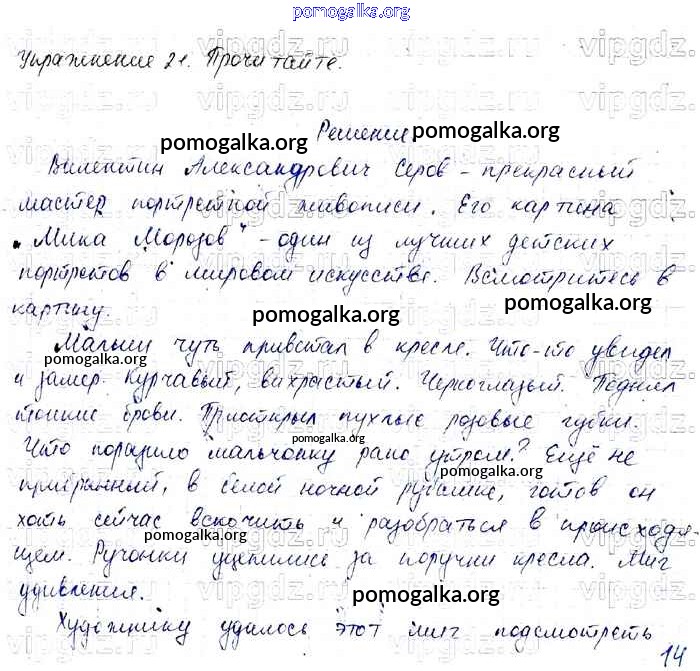 pomogalka.org
Упражнение 21. Прочитайте.
Решение
pomogalka.org pomogalka.org
Валентин Александрович Серов - прекрасный
мастер портретной живописи. Его картина
"Мика Морозов" - один из лучших детских
портретов в мировом искусстве. Всмотритесь в
картину.
pomogalka.org pomogalka.org
Малыш чуть привстал в кресле. Что-то увидел
pomogalka.org
и замер. Курчавый, вихрастый. Черноглазый. Поднял
тонкие брови. Приоткрыл пухлые розовые губки.
pomogalka.org
Что поразило мальчонку рано утром? Ещё не
pomogalka.org
прибранный, в белой ночной рубашке, готов он
хоть сейчас вскочить и разобраться в происходя-
pomogalka.org
щем. Ручонки уцепились за поручни кресла. Миг
удивления.
pomogalka.org
Художнику удалось этот миг подсмотреть
14